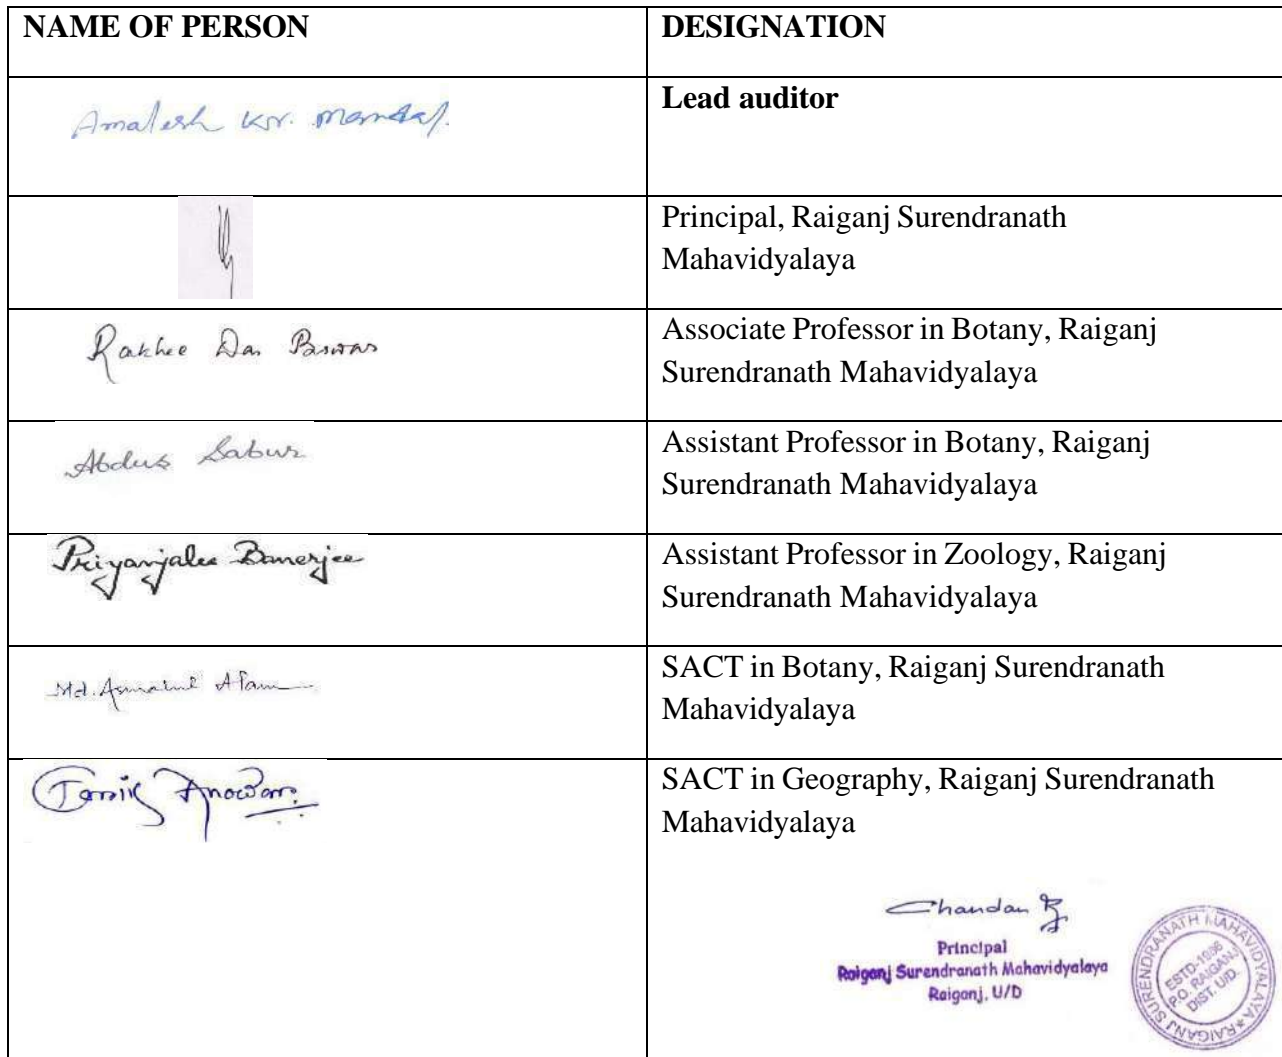 NAME OF PERSON
DESIGNATION
Amalesh Kr. Mandal.
Lead auditor
Principal, Raiganj Surendranath
Mahavidyalaya
Rakhee Das Biswas
Associate Professor in Botany, Raiganj
Surendranath Mahavidyalaya
Abdus Sabur
Assistant Professor in Botany, Raiganj
Surendranath Mahavidyalaya
Priyanjalee Banerjee
Assistant Professor in Zoology, Raiganj
Surendranath Mahavidyalaya
Md. Alam
SACT in Botany, Raiganj Surendranath
Mahavidyalaya
Anowar
SACT in Geography, Raiganj Surendranath
Mahavidyalaya
Chandan
Principal
Raiganj Surendranath Mahavidyalaya
Raiganj, U/D
RAIGANJ SURENDRANATH MAHAVIDYALAYA
P.O. RAIGANJ
DIST. U/D.